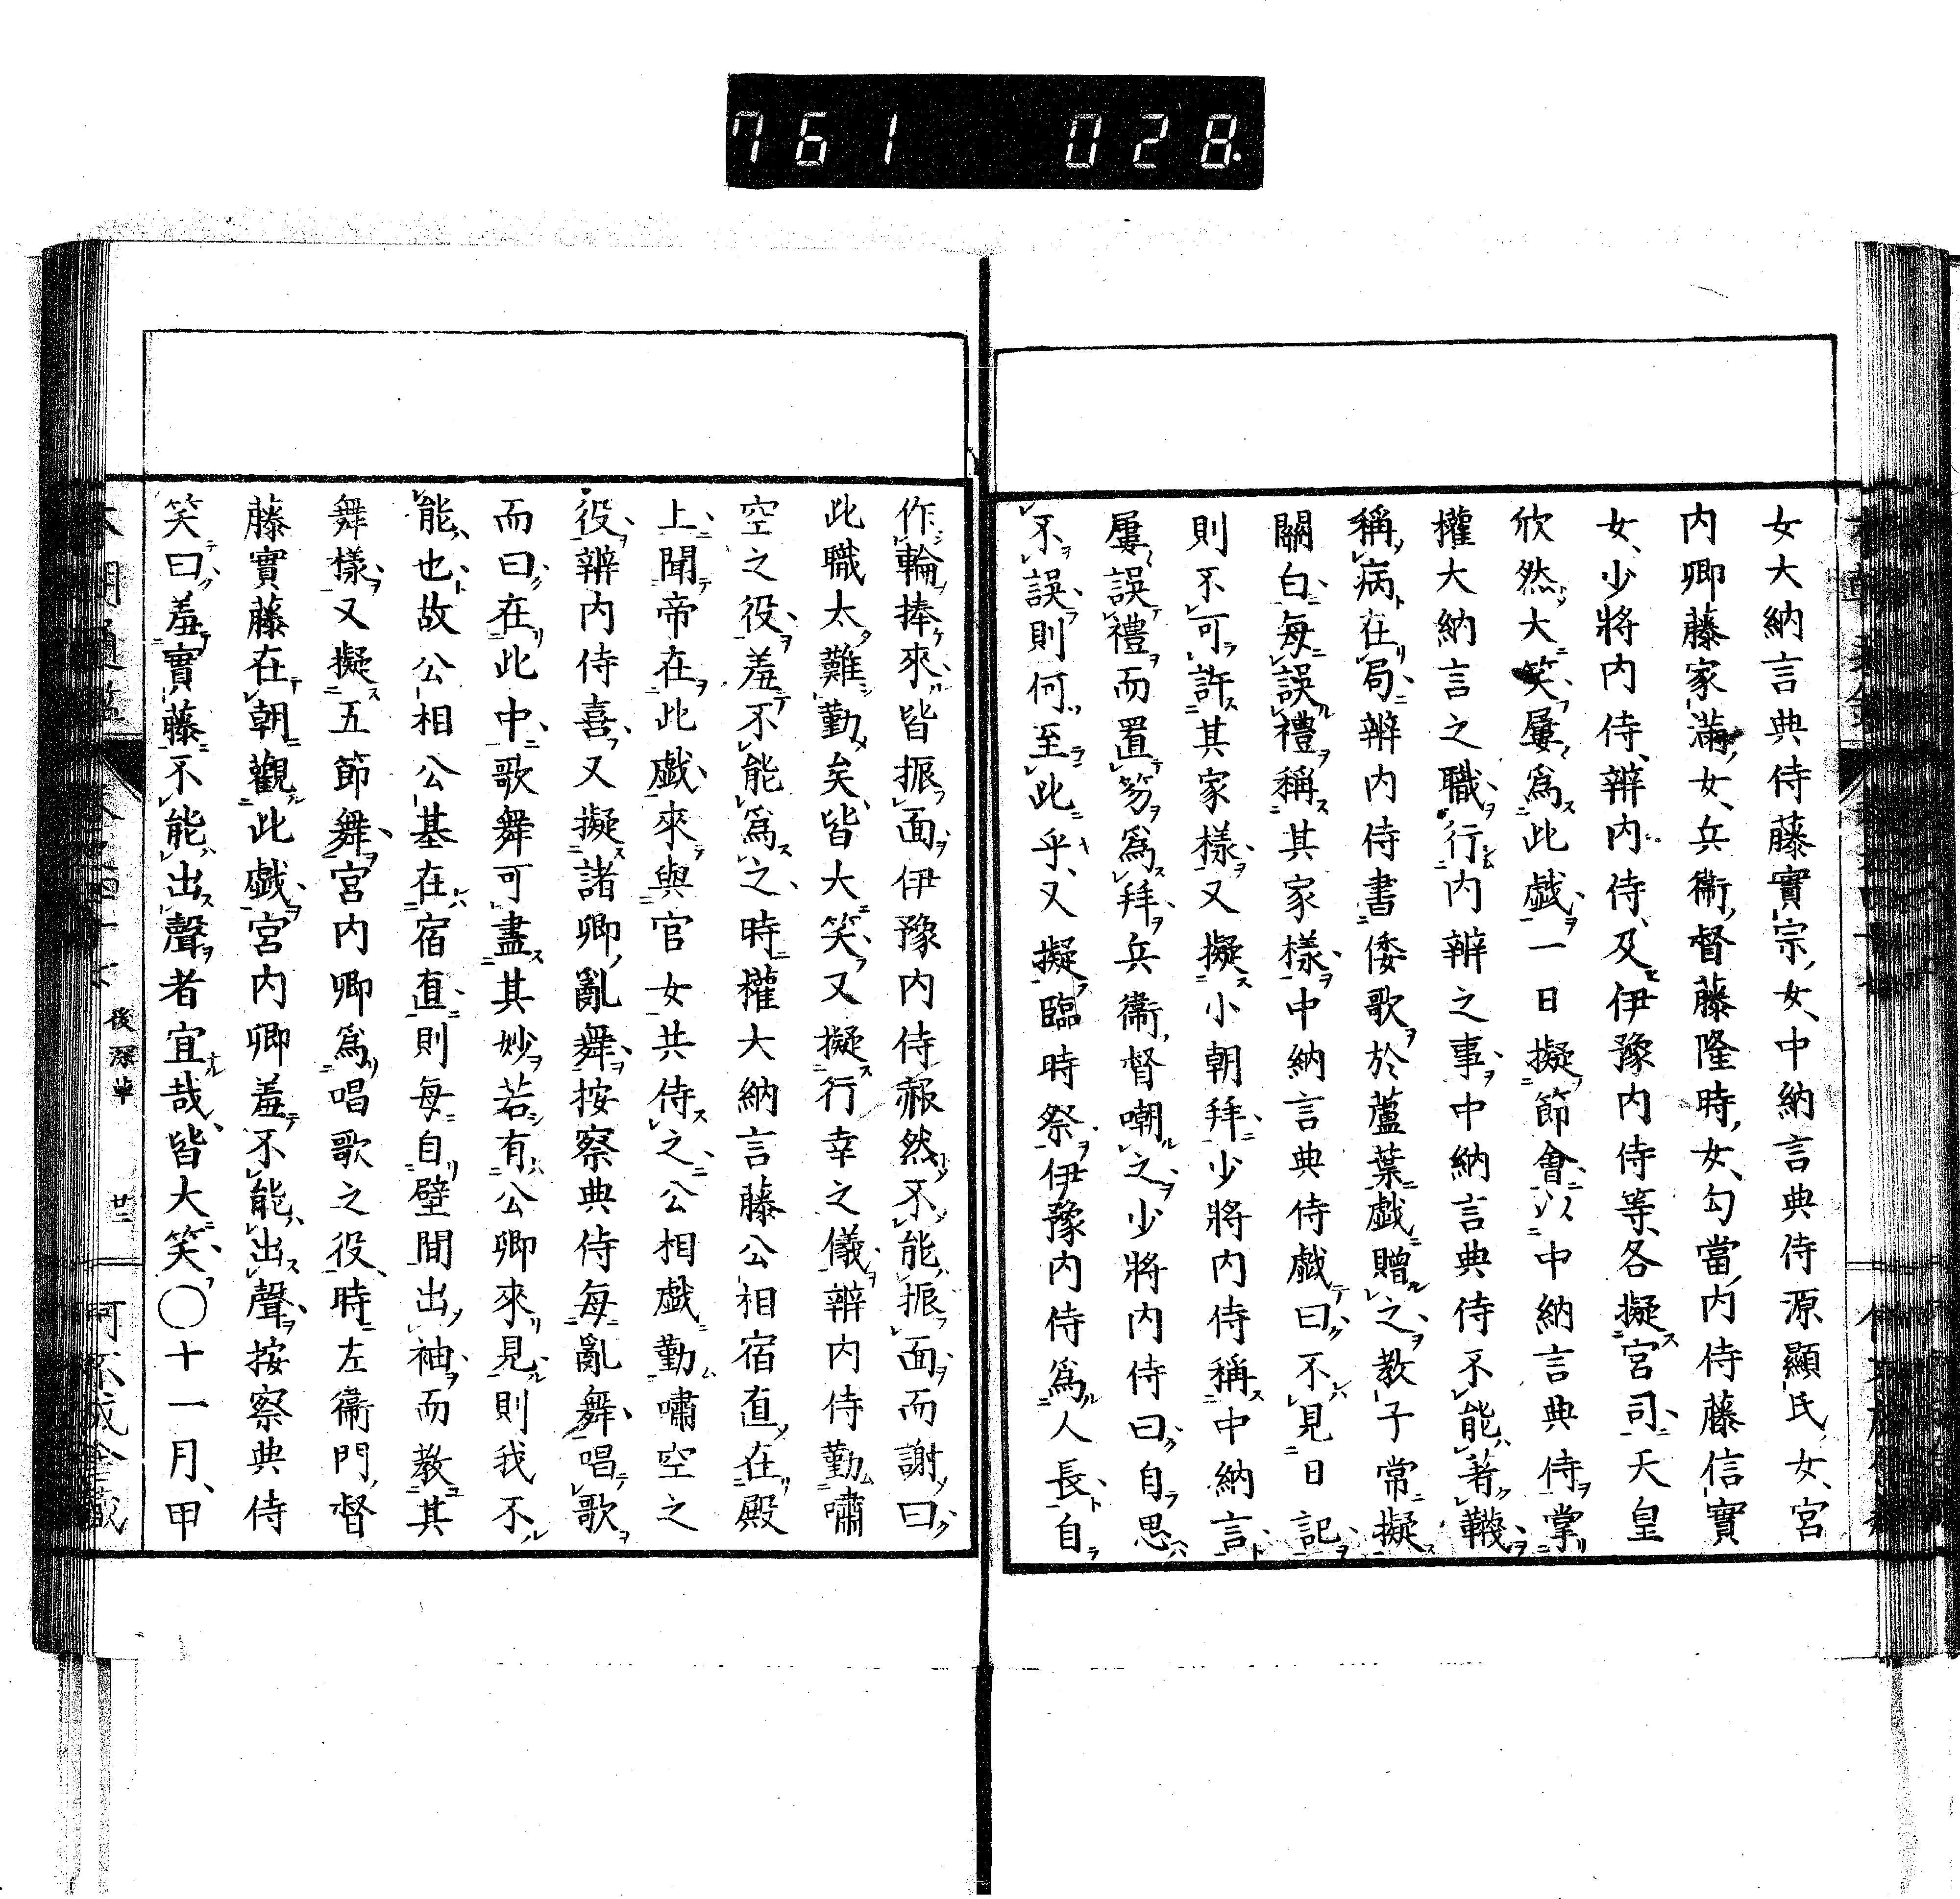 761 028
女大納言典侍藤實宗女中納言典侍源顯氏女宮
内卿藤家滿女兵衞督藤隆時女勾當内侍藤信實
女少將内侍辨内侍及伊豫内侍等各擬宮司天皇
欣然大笑屢爲此戲一日擬節會以中納言典侍掌
權大納言之職行内辨之事中納言典侍不能著韈
稱病在局辨内侍書倭歌於蘆葉戲贈之教子常擬
關白每誤禮稱其家樣中納言典侍戲曰不見日記
則不可許其家樣又擬小朝拜少將内侍稱中納言
屢誤禮而置笏爲拜兵衞督嘲之少將内侍曰自思
不誤則何至此乎又擬臨時祭伊豫内侍爲人長自
作輪捧來皆振面伊豫内侍赧然不能振面而謝曰
此職太難勤矣皆大笑又擬行幸之儀辨内侍勤嘯
空之役羞不能爲之時權大納言藤公相宿直在殿
上聞帝在此戲來與官女共侍之公相戲勤嘯空之
役辨内侍喜又擬諸卿亂舞按察典侍每亂舞唱歌
而曰在此中歌舞可盡其妙若有公卿來見則我不
能也故公相公基在宿直則每自壁間出袖而教其
舞樣又擬五節舞宮内卿爲唱歌之役時左衞門督
藤實藤在朝觀此戲宮内卿羞不能出聲按察典侍
笑曰羞實藤不能出聲者宜哉皆大笑○十一月甲
後深草 廿二